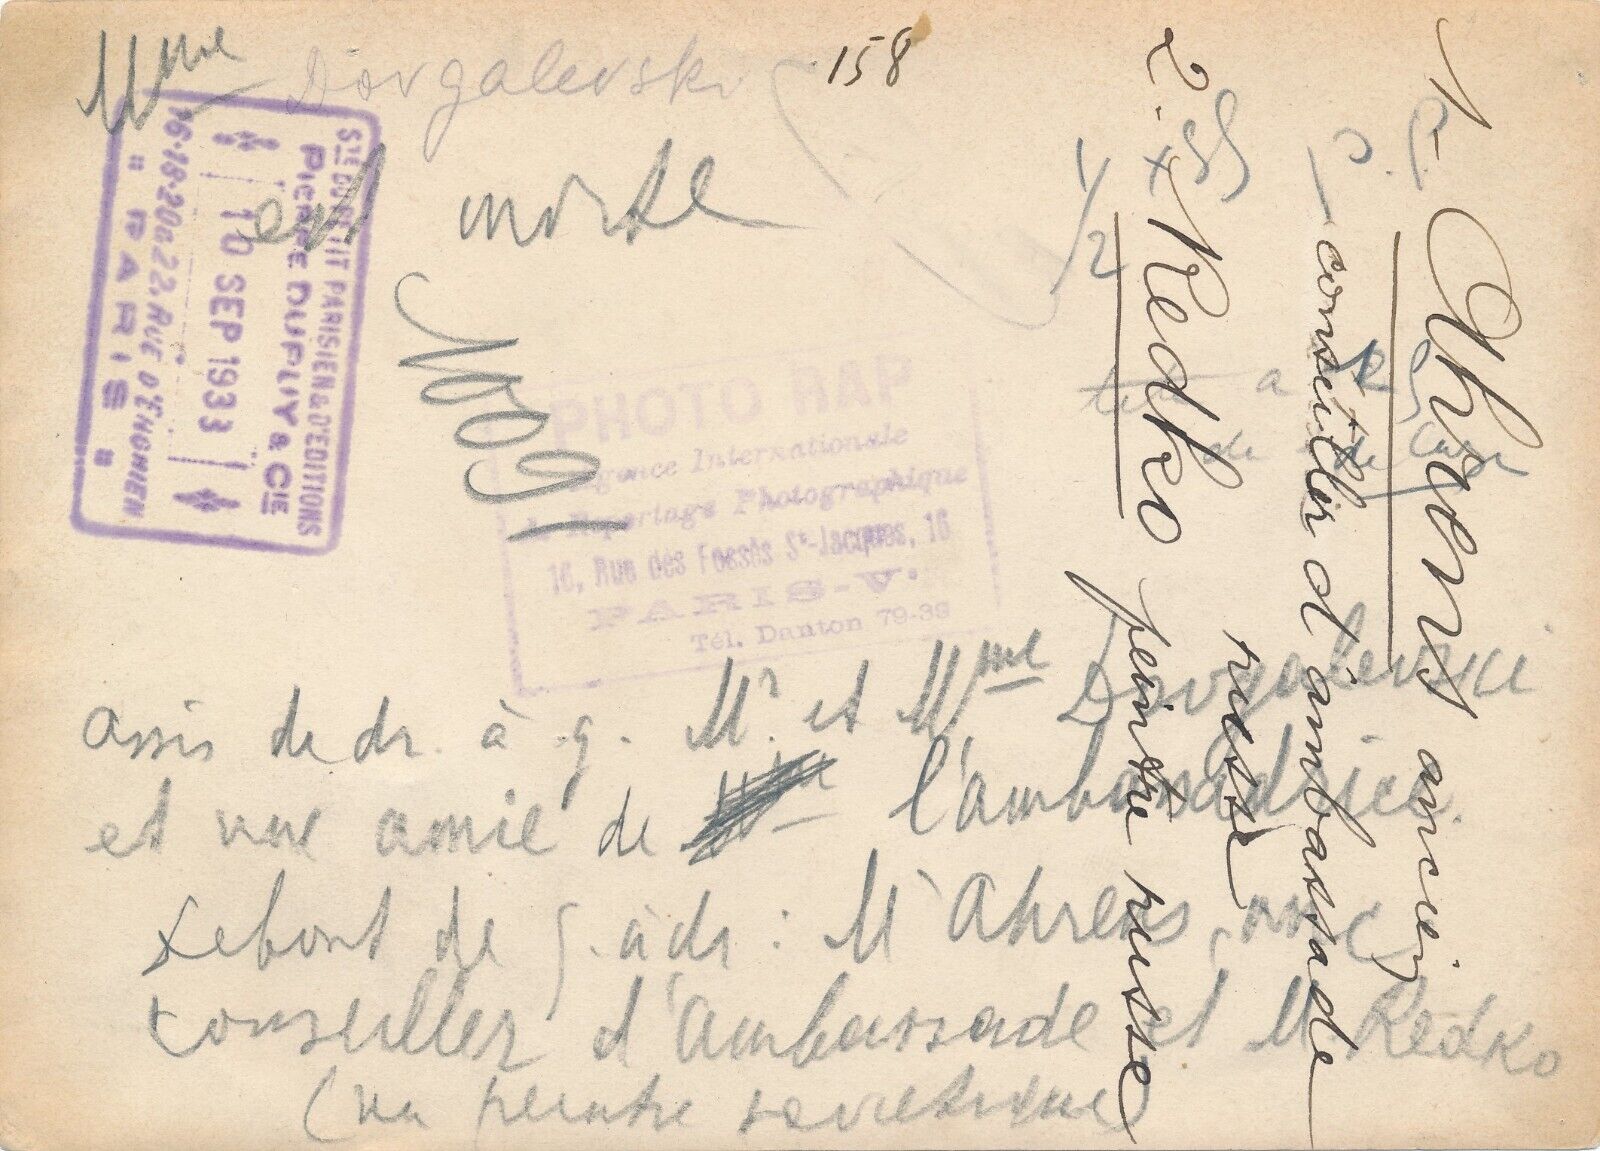 Mme Dovgalevski
158
est morte
Sté DU PETIT PARISIEN & D'EDITIONS
PIERRE DUPUY & CIE
10 SEP 1933
16·18·20 & 22, RUE D'ENGHIEN
" PARIS "
PHOTO RAP
Agence Internationale
de Reportage Photographique
16, Rue des Fossés St-Jacques, 16
PARIS-V.
Tél. Danton 79-38
assis de dr. à g. Mr. et Mme Dovgalevski
et une amie de l'ambassadrice.
debout de g. à dr : M Ahrens, anc
conseiller d'ambassade et M. Redko
(un peintre soviétique)
1 - Ahrens ancien
conseiller d'ambassade
russe
2. Redko peintre russe
1/2